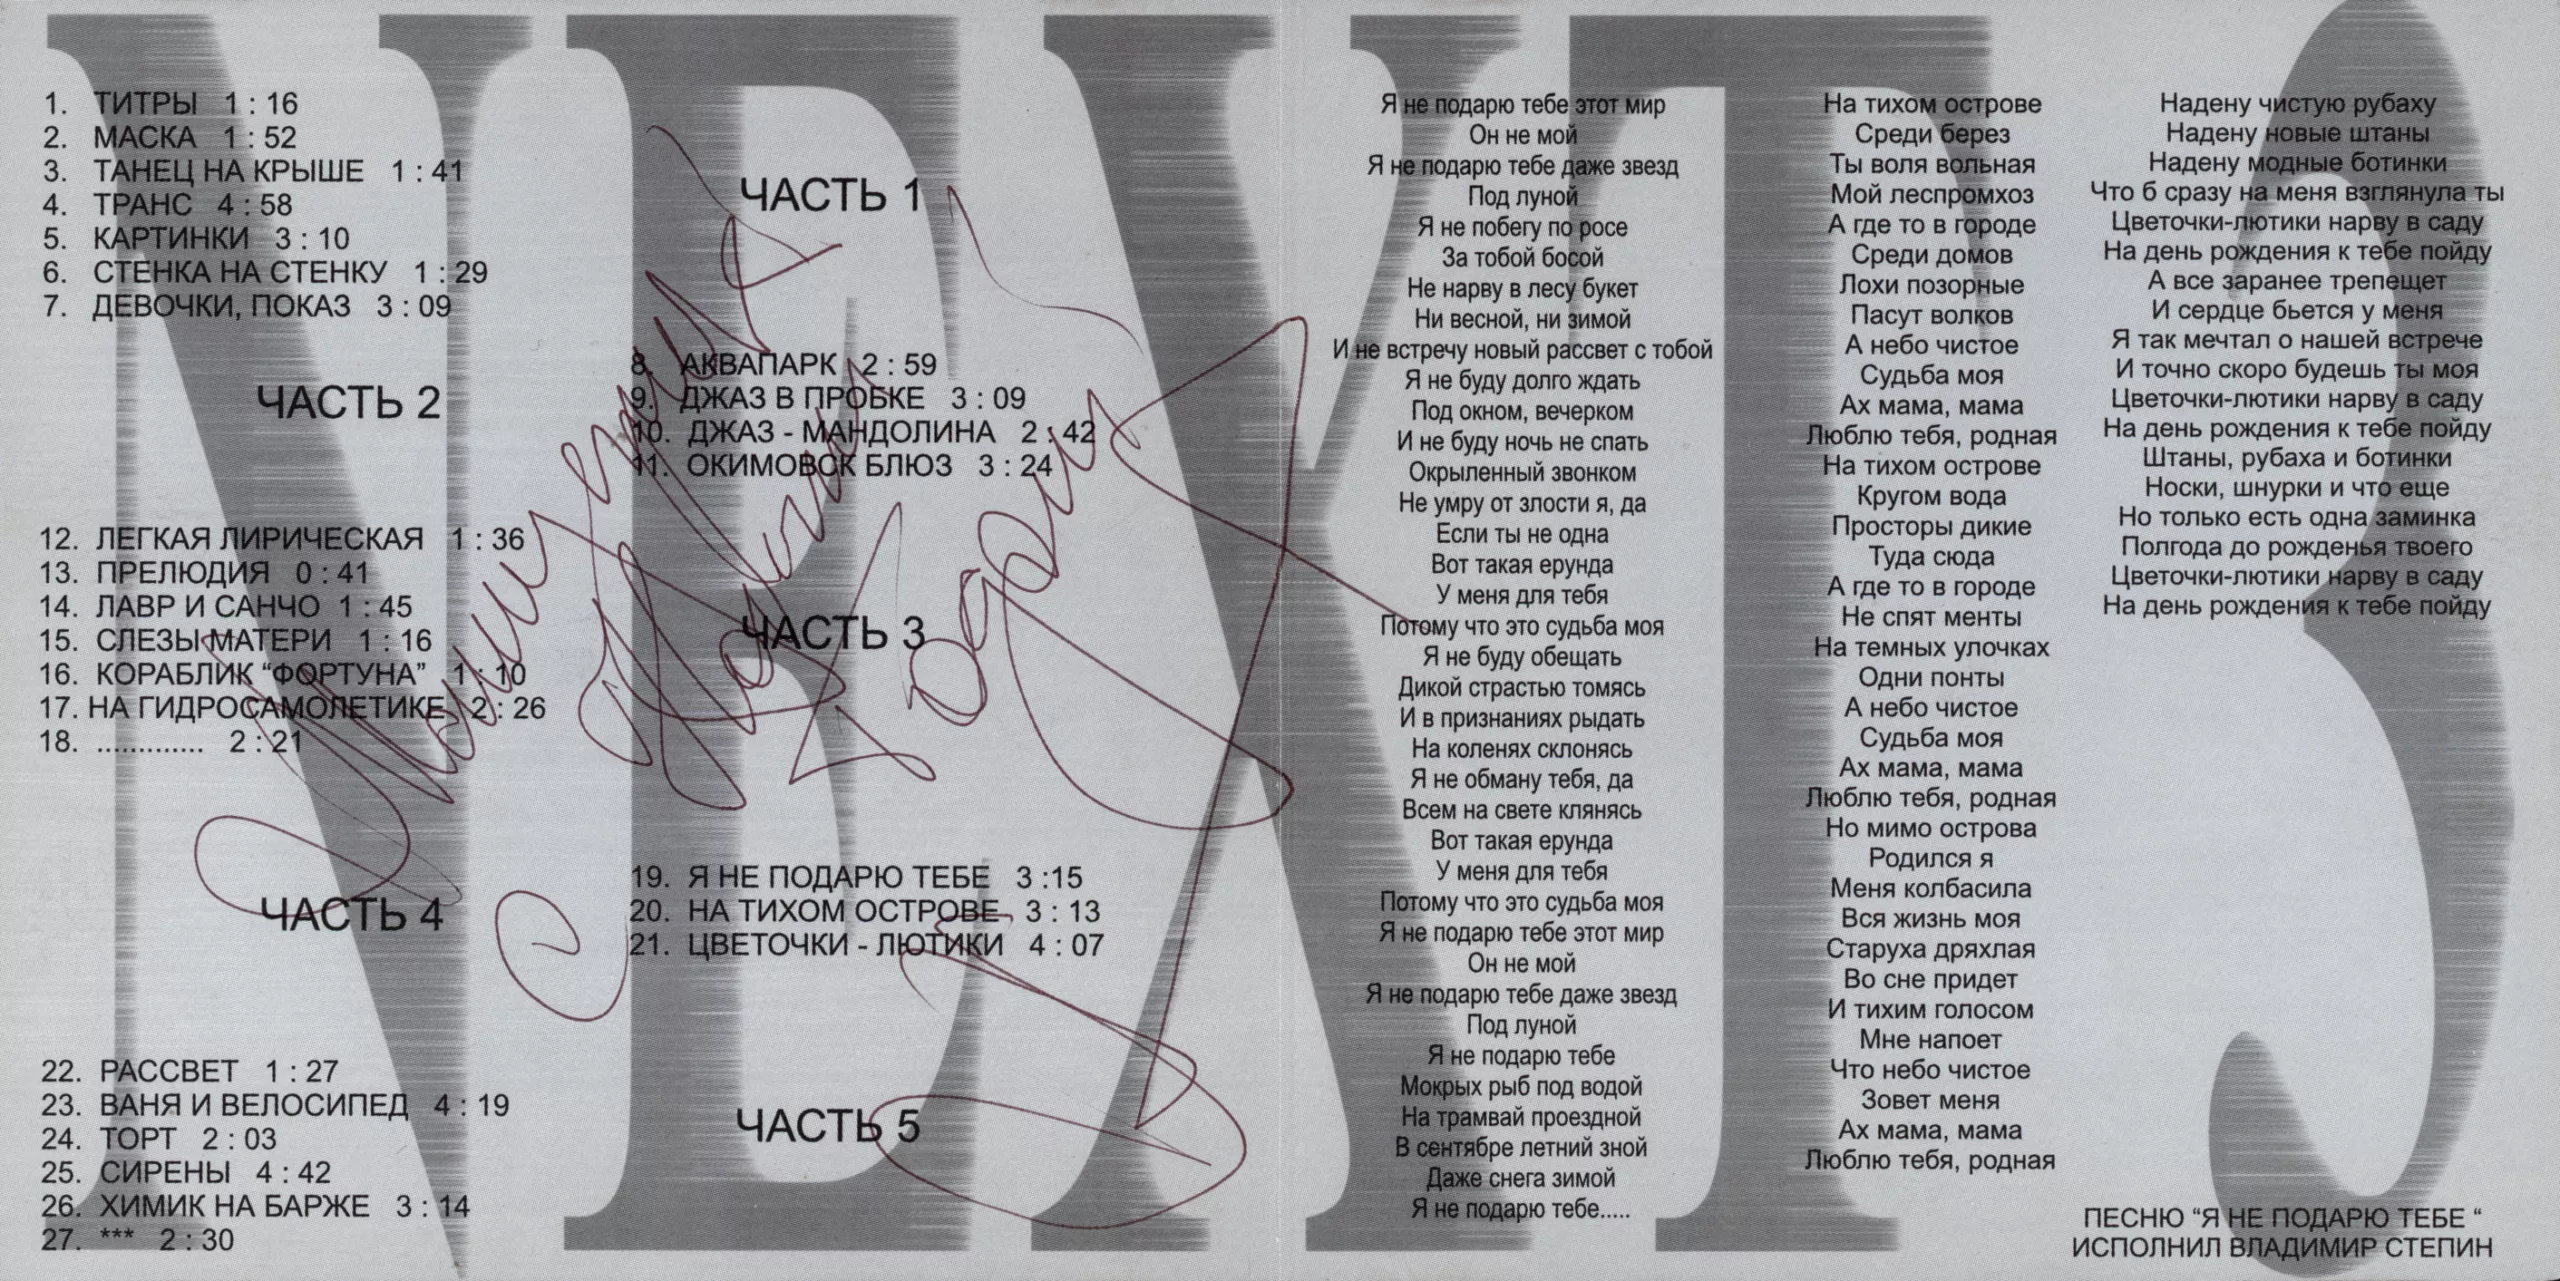 NEXT 3
1. ТИТРЫ 1 : 16
2. МАСКА 1 : 52
3. ТАНЕЦ НА КРЫШЕ 1 : 41
4. ТРАНС 4 : 58
5. КАРТИНКИ 3 : 10
6. СТЕНКА НА СТЕНКУ 1 : 29
7. ДЕВОЧКИ, ПОКАЗ 3 : 09
ЧАСТЬ 1
ЧАСТЬ 2
8. АКВАПАРК 2 : 59
9. ДЖАЗ В ПРОБКЕ 3 : 09
10. ДЖАЗ - МАНДОЛИНА 2 : 42
11. ОКИМОВСК БЛЮЗ 3 : 24
12. ЛЕГКАЯ ЛИРИЧЕСКАЯ 1 : 36
13. ПРЕЛЮДИЯ 0 : 41
14. ЛАВР И САНЧО 1 : 45
15. СЛЕЗЫ МАТЕРИ 1 : 16
16. КОРАБЛИК “ФОРТУНА” 1 : 10
17. НА ГИДРОСАМОЛЕТИКЕ 2 : 26
18. ............. 2 : 21
ЧАСТЬ 3
ЧАСТЬ 4
19. Я НЕ ПОДАРЮ ТЕБЕ 3 :15
20. НА ТИХОМ ОСТРОВЕ 3 : 13
21. ЦВЕТОЧКИ - ЛЮТИКИ 4 : 07
22. РАССВЕТ 1 : 27
23. ВАНЯ И ВЕЛОСИПЕД 4 : 19
24. ТОРТ 2 : 03
25. СИРЕНЫ 4 : 42
26. ХИМИК НА БАРЖЕ 3 : 14
27. *** 2 : 30
ЧАСТЬ 5
Я не подарю тебе этот мир
Он не мой
Я не подарю тебе даже звезд
Под луной
Я не побегу по росе
За тобой босой
Не нарву в лесу букет
Ни весной, ни зимой
И не встречу новый рассвет с тобой
Я не буду долго ждать
Под окном, вечерком
И не буду ночь не спать
Окрыленный звонком
Не умру от злости я, да
Если ты не одна
Вот такая ерунда
У меня для тебя
Потому что это судьба моя
Я не буду обещать
Дикой страстью томясь
И в признаниях рыдать
На коленях склонясь
Я не обману тебя, да
Всем на свете клянясь
Вот такая ерунда
У меня для тебя
Потому что это судьба моя
Я не подарю тебе этот мир
Он не мой
Я не подарю тебе даже звезд
Под луной
Я не подарю тебе
Мокрых рыб под водой
На трамвай проездной
В сентябре летний зной
Даже снега зимой
Я не подарю тебе.....
На тихом острове
Среди берез
Ты воля вольная
Мой леспромхоз
А где то в городе
Среди домов
Лохи позорные
Пасут волков
А небо чистое
Судьба моя
Ах мама, мама
Люблю тебя, родная
На тихом острове
Кругом вода
Просторы дикие
Туда сюда
А где то в городе
Не спят менты
На темных улочках
Одни понты
А небо чистое
Судьба моя
Ах мама, мама
Люблю тебя, родная
Но мимо острова
Родился я
Меня колбасила
Вся жизнь моя
Старуха дряхлая
Во сне придет
И тихим голосом
Мне напоет
Что небо чистое
Зовет меня
Ах мама, мама
Люблю тебя, родная
Надену чистую рубаху
Надену новые штаны
Надену модные ботинки
Что б сразу на меня взглянула ты
Цветочки-лютики нарву в саду
На день рождения к тебе пойду
А все заранее трепещет
И сердце бьется у меня
Я так мечтал о нашей встрече
И точно скоро будешь ты моя
Цветочки-лютики нарву в саду
На день рождения к тебе пойду
Штаны, рубаха и ботинки
Носки, шнурки и что еще
Но только есть одна заминка
Полгода до рожденья твоего
Цветочки-лютики нарву в саду
На день рождения к тебе пойду
ПЕСНЮ “Я НЕ ПОДАРЮ ТЕБЕ “
ИСПОЛНИЛ ВЛАДИМИР СТЕПИН